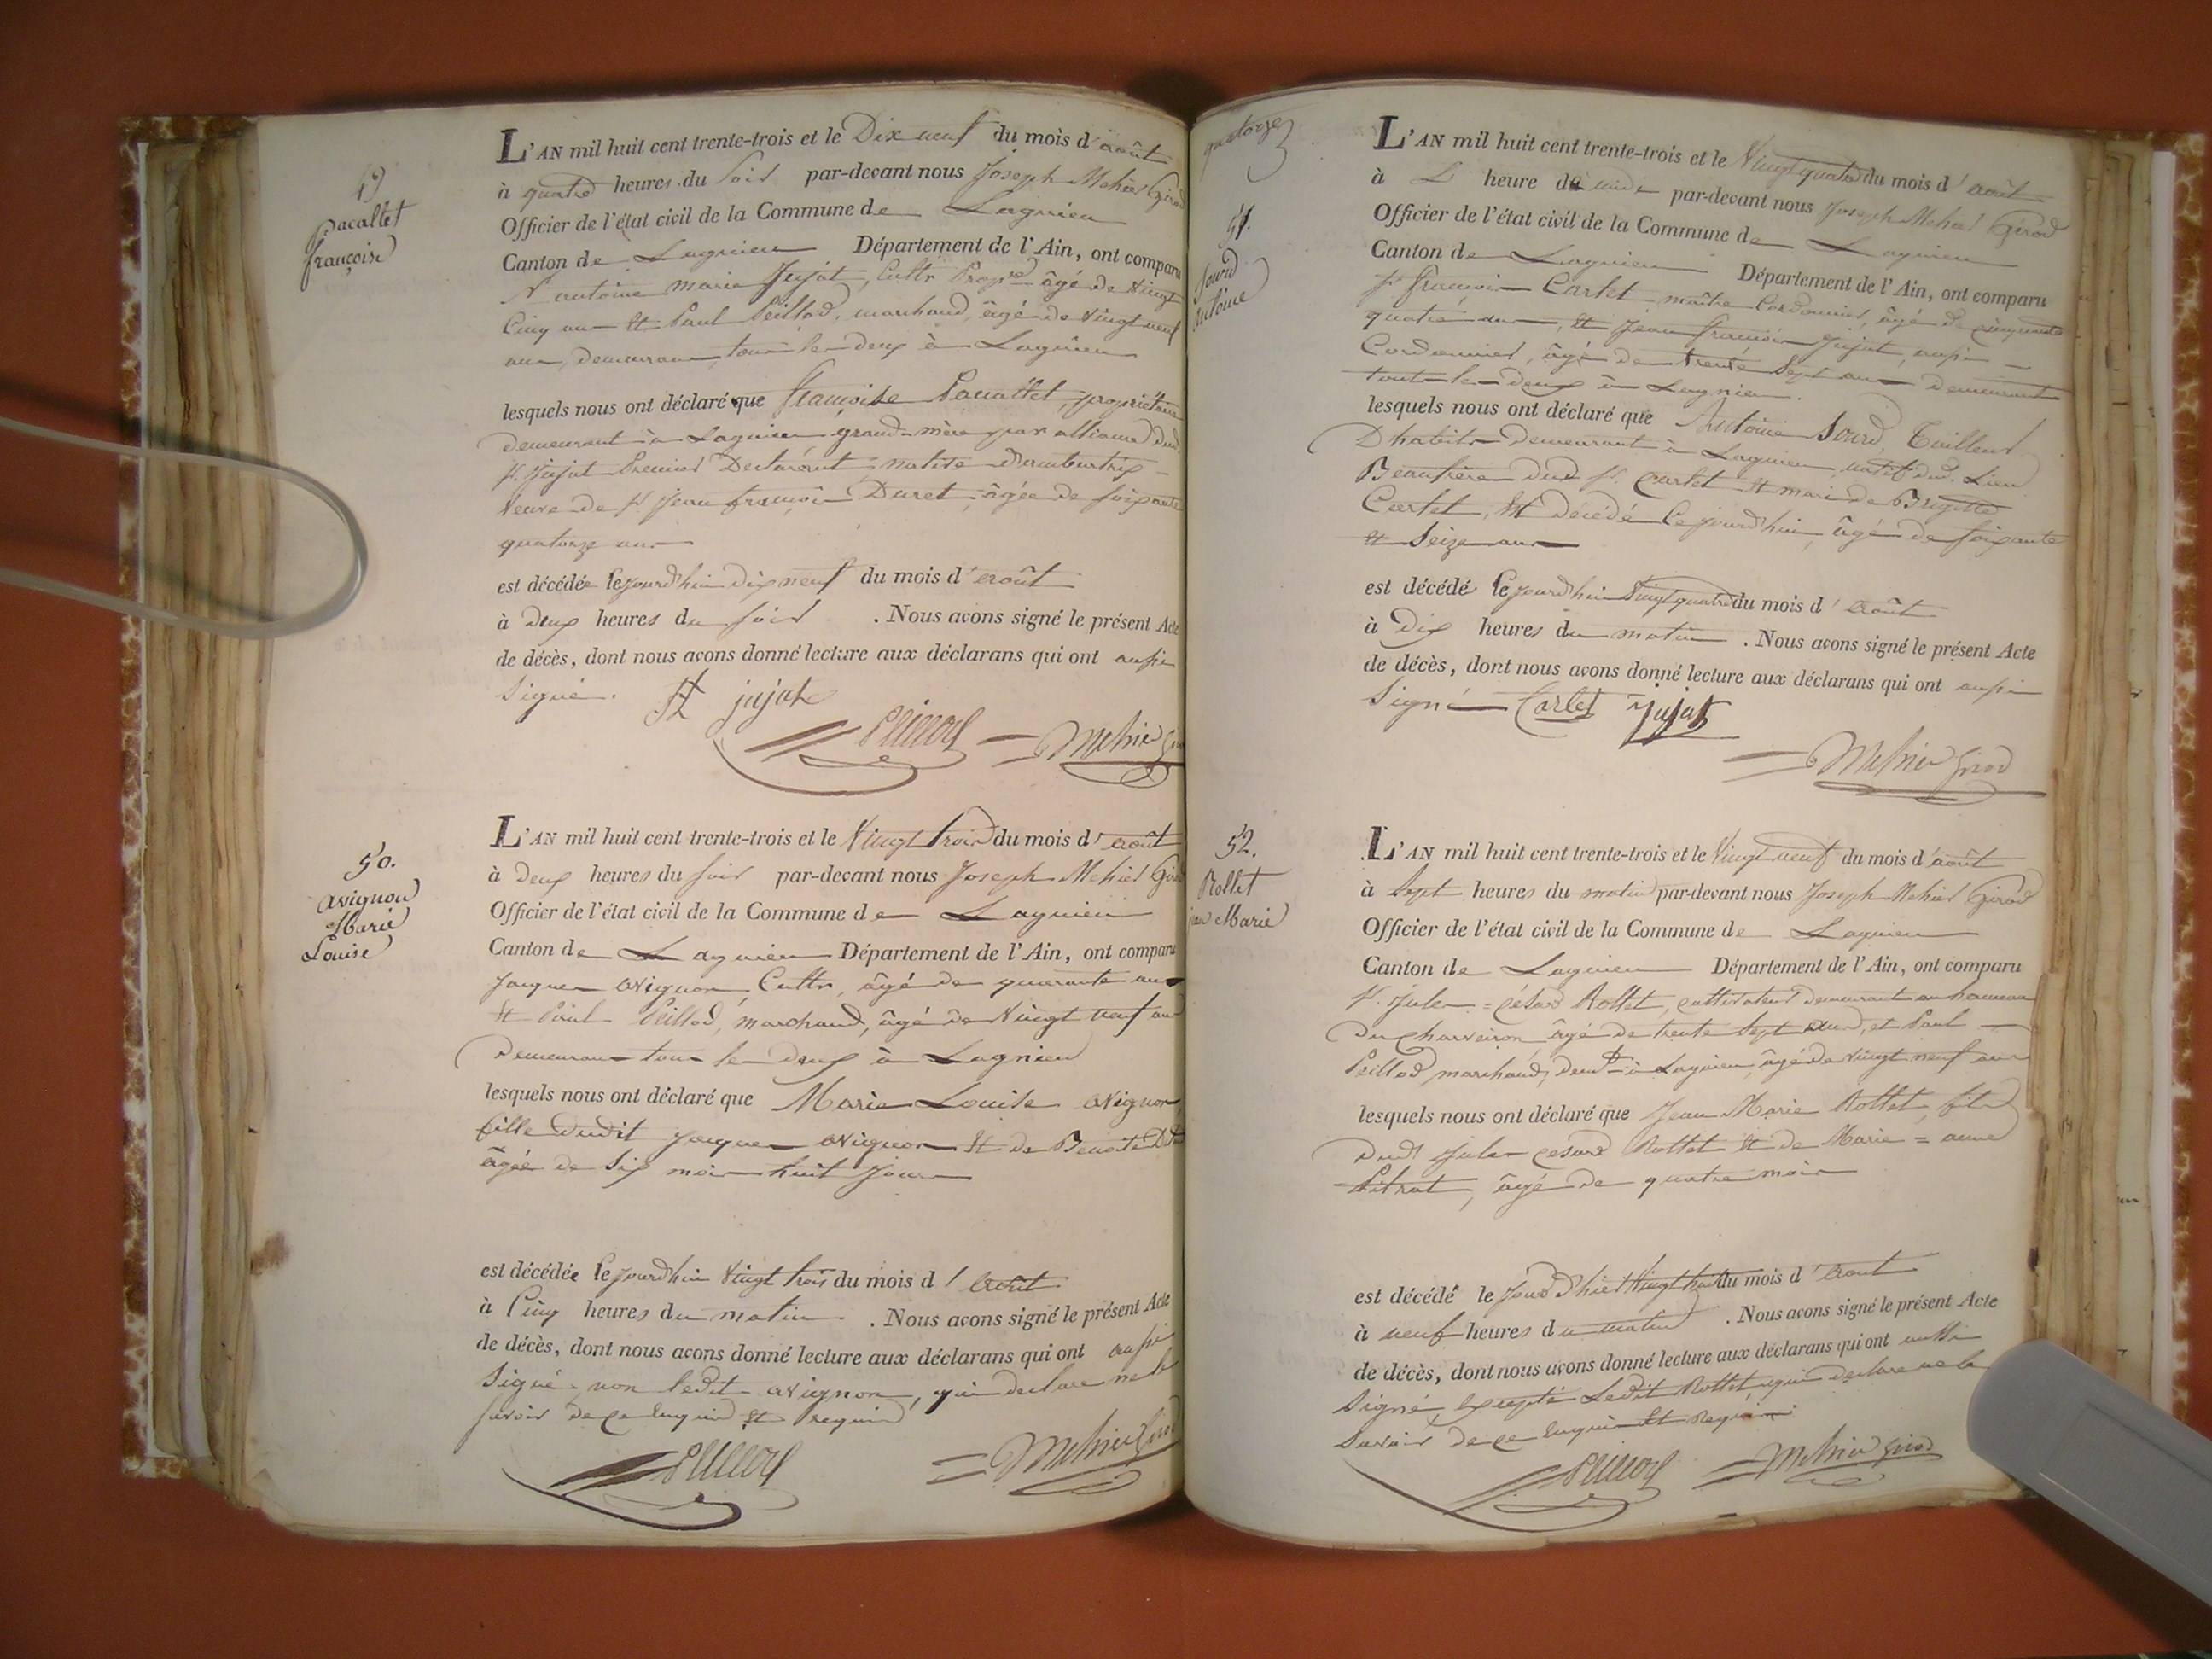 49
Pacallet
françoise
L'AN mil huit cent trente-trois et le Dix neuf du mois d'août
à quatre heures du soir par-devant nous Joseph Mehier Girod
Officier de l'état civil de la Commune de Lagnieu
Canton de Lagnieu Département de l'Ain, ont comparu
Sr antoine marie Jujat, Cultr Propre âgé de Vingt
Cinq ans et Paul Peillod, marchand, âgé de Vingt neuf
ans, demeurans tous les deux à Lagnieu
lesquels nous ont déclaré que françoise Pacallet, propriétaire
demeurant à Lagnieu grand-mère par alliance dud.
Sr. Jujat Premier Déclarant native d'ambutrix
Veuve de Sr Jean françois Duret, âgée de soixante
quatorze ans
est décédée le jourd'hui dix neuf du mois d'août
à deux heures du soir . Nous avons signé le présent Acte
de décès, dont nous avons donné lecture aux déclarans qui ont aussi
signé. jujat
Peillod Mehier Girod
50.
avignon
Marie
Louise
L'AN mil huit cent trente-trois et le Vingt trois du mois d'août
à deux heures du soir par-devant nous Joseph Mehier Girod
Officier de l'état civil de la Commune de Lagnieu
Canton de Lagnieu Département de l'Ain, ont comparu
Jacques avignon, Cultr, âgé de quarante ans
et Paul Peillod, marchand, âgé de Vingt neuf ans
Demeurans tous les deux à Lagnieu
lesquels nous ont déclaré que Marie Louise avignon
fille dudit Jacques avignon et de Benoite
âgée de six mois huit jours
est décédée le jourd'hui Vingt trois du mois d'août
à Cinq heures du matin . Nous avons signé le présent Acte
de décès, dont nous avons donné lecture aux déclarans qui ont aussi
signé non ledit avignon, qui declare ne le
savoir de ce enquis et requis
Peillod Mehier Girod
quatorze
51.
Sourd
antoine
L'AN mil huit cent trente-trois et le Vingt quatre du mois d'août
à heure de midi par-devant nous Joseph Mehier Girod
Officier de l'état civil de la Commune de Lagnieu
Canton de Lagnieu Département de l'Ain, ont comparu
Sr françois Cartet maître Cordonnier, âgé de cinquante
quatre ans, et Jean françois Jujat, aussi
Cordonnier, âgé de trente sept ans demeurant
tout les deux à Lagnieu.
lesquels nous ont déclaré que Antoine Sourd, Tailleur
D'habits demeurant à Lagnieu, natif dud. Lieu
Beaufrère dud Sr. Cartet et mari de Brigitte
Cartet, est décédé ce jourd'hui, âgé de soixante
et seize ans
est décédé le jourd'hui Vingt quatre du mois d'août
à Dix heures du matin . Nous avons signé le présent Acte
de décès, dont nous avons donné lecture aux déclarans qui ont aussi
signé Cartet Jujat
Mehier Girod
52.
Rollet
jean Marie
L'AN mil huit cent trente-trois et le Vingt neuf du mois d'août
à Sept heures du matin par-devant nous Joseph Mehier Girod
Officier de l'état civil de la Commune de Lagnieu
Canton de Lagnieu Département de l'Ain, ont comparu
Sr. Jules=césar Rollet, cultivateur demeurant au hameau
du charveiron âgé de trente Sept ans, et Paul
Peillod, marchand, demt à Lagnieu, âgé de Vingt neuf ans
lesquels nous ont déclaré que Jean Marie Rollet, fils
Dudt Jules cesard Rollet et de Marie=anne
Pitrat, âgé de quatre mois
est décédé le jour D'hier Vingt huit du mois d'août
à neuf heures du matin . Nous avons signé le présent Acte
de décès, dont nous avons donné lecture aux déclarans qui ont aussi
signé, excepté Ledit Rollet, qui declare ne le
savoir de ce enquis et Requis
Peillod Mehier Girod